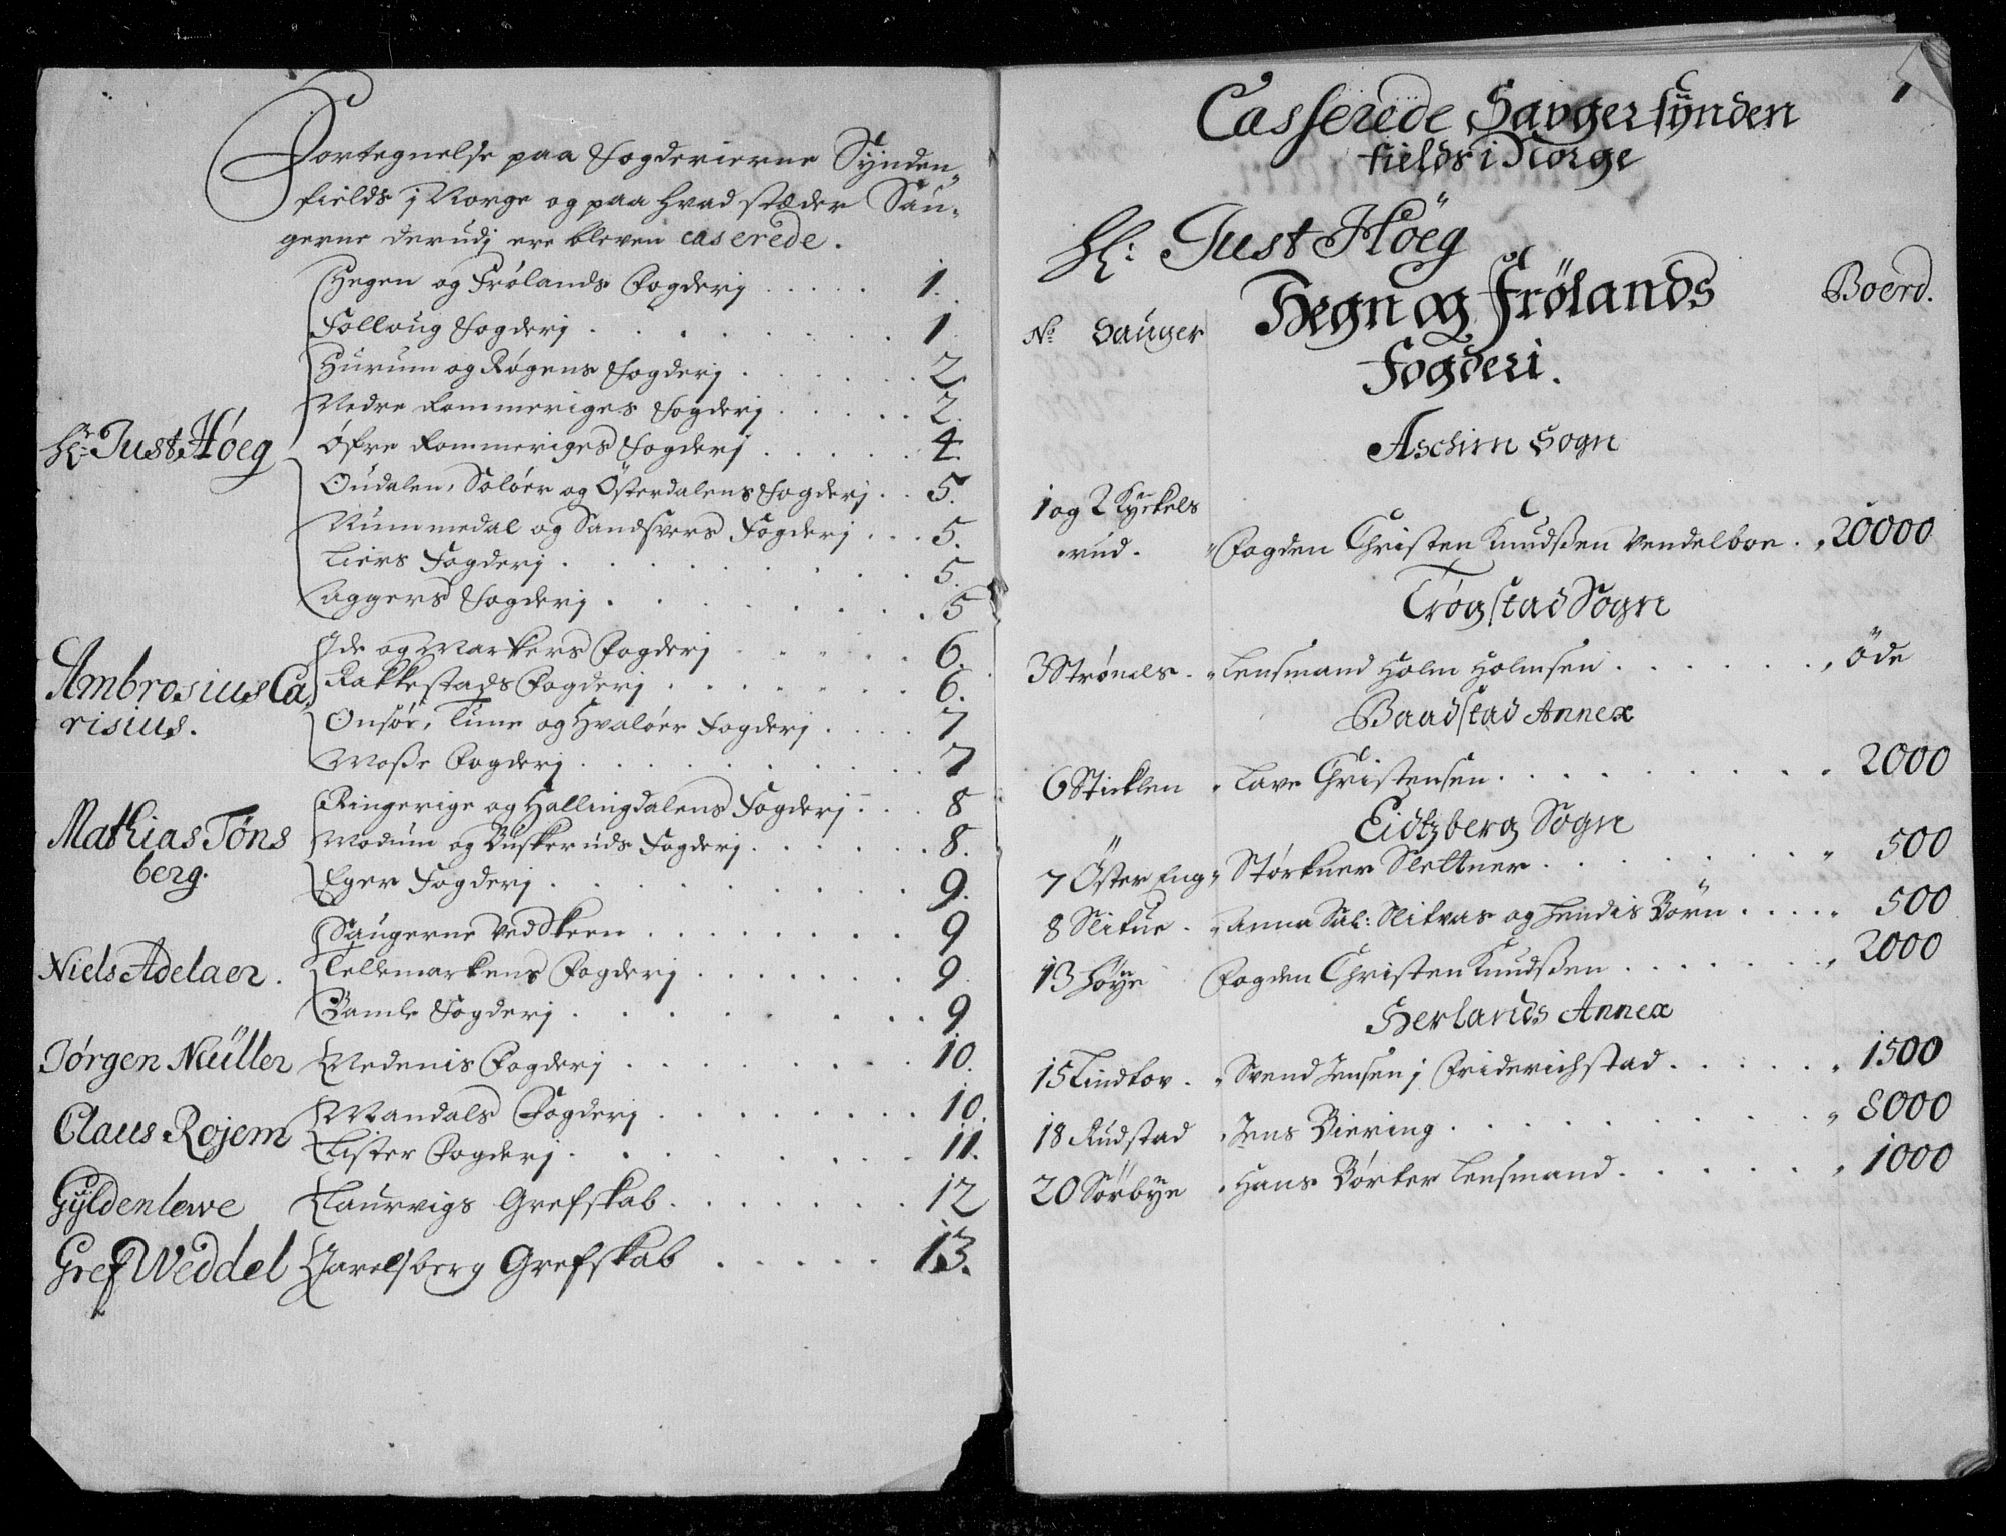 Fortegnelse paa Fogderierne Synden-
fields i Norge og paa hvad stæder Sau-
gerne derudj ere bleven casserede.
Hr: Just Höeg
Hegen og Frølands Fogderj . . . . . 1.
Folloug Fogderj . . . . . . . . 1
Hurum og Røgens Fogderj . . . . . . 2.
Nedre Rommeriges Fogderj . . . . . 2.
Øfre Rommeriges Fogderj . . . . . 4.
Oudalen, Soløer og Österdalens Fogderj . . 5.
Nummedal og Sandsvers Fogderj . . . 5.
Liers Fogderj . . . . . . . . . 5.
Aggers Fogderj . . . . . . . . 5
Ambrosius Ca-
risius.
Ide og Markers Fogderj . . . . . 6.
Rakkestads Fogderj . . . . . . . 6.
Onsöe, Tune og Hvalöer Fogderj . . . . 7
Mosse Fogderj . . . . . . . . . 7
Mathias Töns
berg.
Ringerige og Hallingdalens Fogderj . . 8
Modum og Buskeruds Fogderj . . . . . . 8.
Eger Fogderj . . . . . . . . . 9.
Niels Adelaer.
Saugerne ved Skeen . . . . . . . 9
Tellemarkens Fogderj . . . . . . 9.
Bamle Fogderj . . . . . . . . 9
Jörgen Müller Nedenis Fogderj . . . . . . . 10.
Claus Rojem
Mandals Fogderj . . . . . . . . 10.
Lister Fogderj . . . . . . . . . 11.
Gyldenlewe Laurvigs Grefskab . . . . . . . 12
Gref Weddel Jarelsberg Grefskab . . . . . 13.
1
Casserede Sauger synden
fields i Norge
Hr: Just Höeg
Hegn og Frölands
Fogderi.
No Sauger
Boerd.
Aschim Sogn
1 og 2 Kyrkels
rud. Fogden Christen Knudssen Vendelboe . 20000
Trögstad Sogn
3 Strønds . Lensmand Holm Holmsen . . . . . . . öde
Baadstad Annex
6 Sticklen Lave Christensen . . . . . . . . . 2000
Eidtzberg Sogn
7 Öster Eng Störkner Slettner . . . . . . . . 500
8 Slitue . Anna Sal: Slitvas og hendis Börn . . . . 500
13 Höye Fogden Christen Knudssen . . . . . . 2000
Herlands Annex
15 Lindhov . Svend Jensen j Friderichstad . . . . . . 1500
18 Rudstad Jens Biering . . . . . . . . . . 8000
20 Sörbye Hans Börker Lensmand . . . . . . 1000